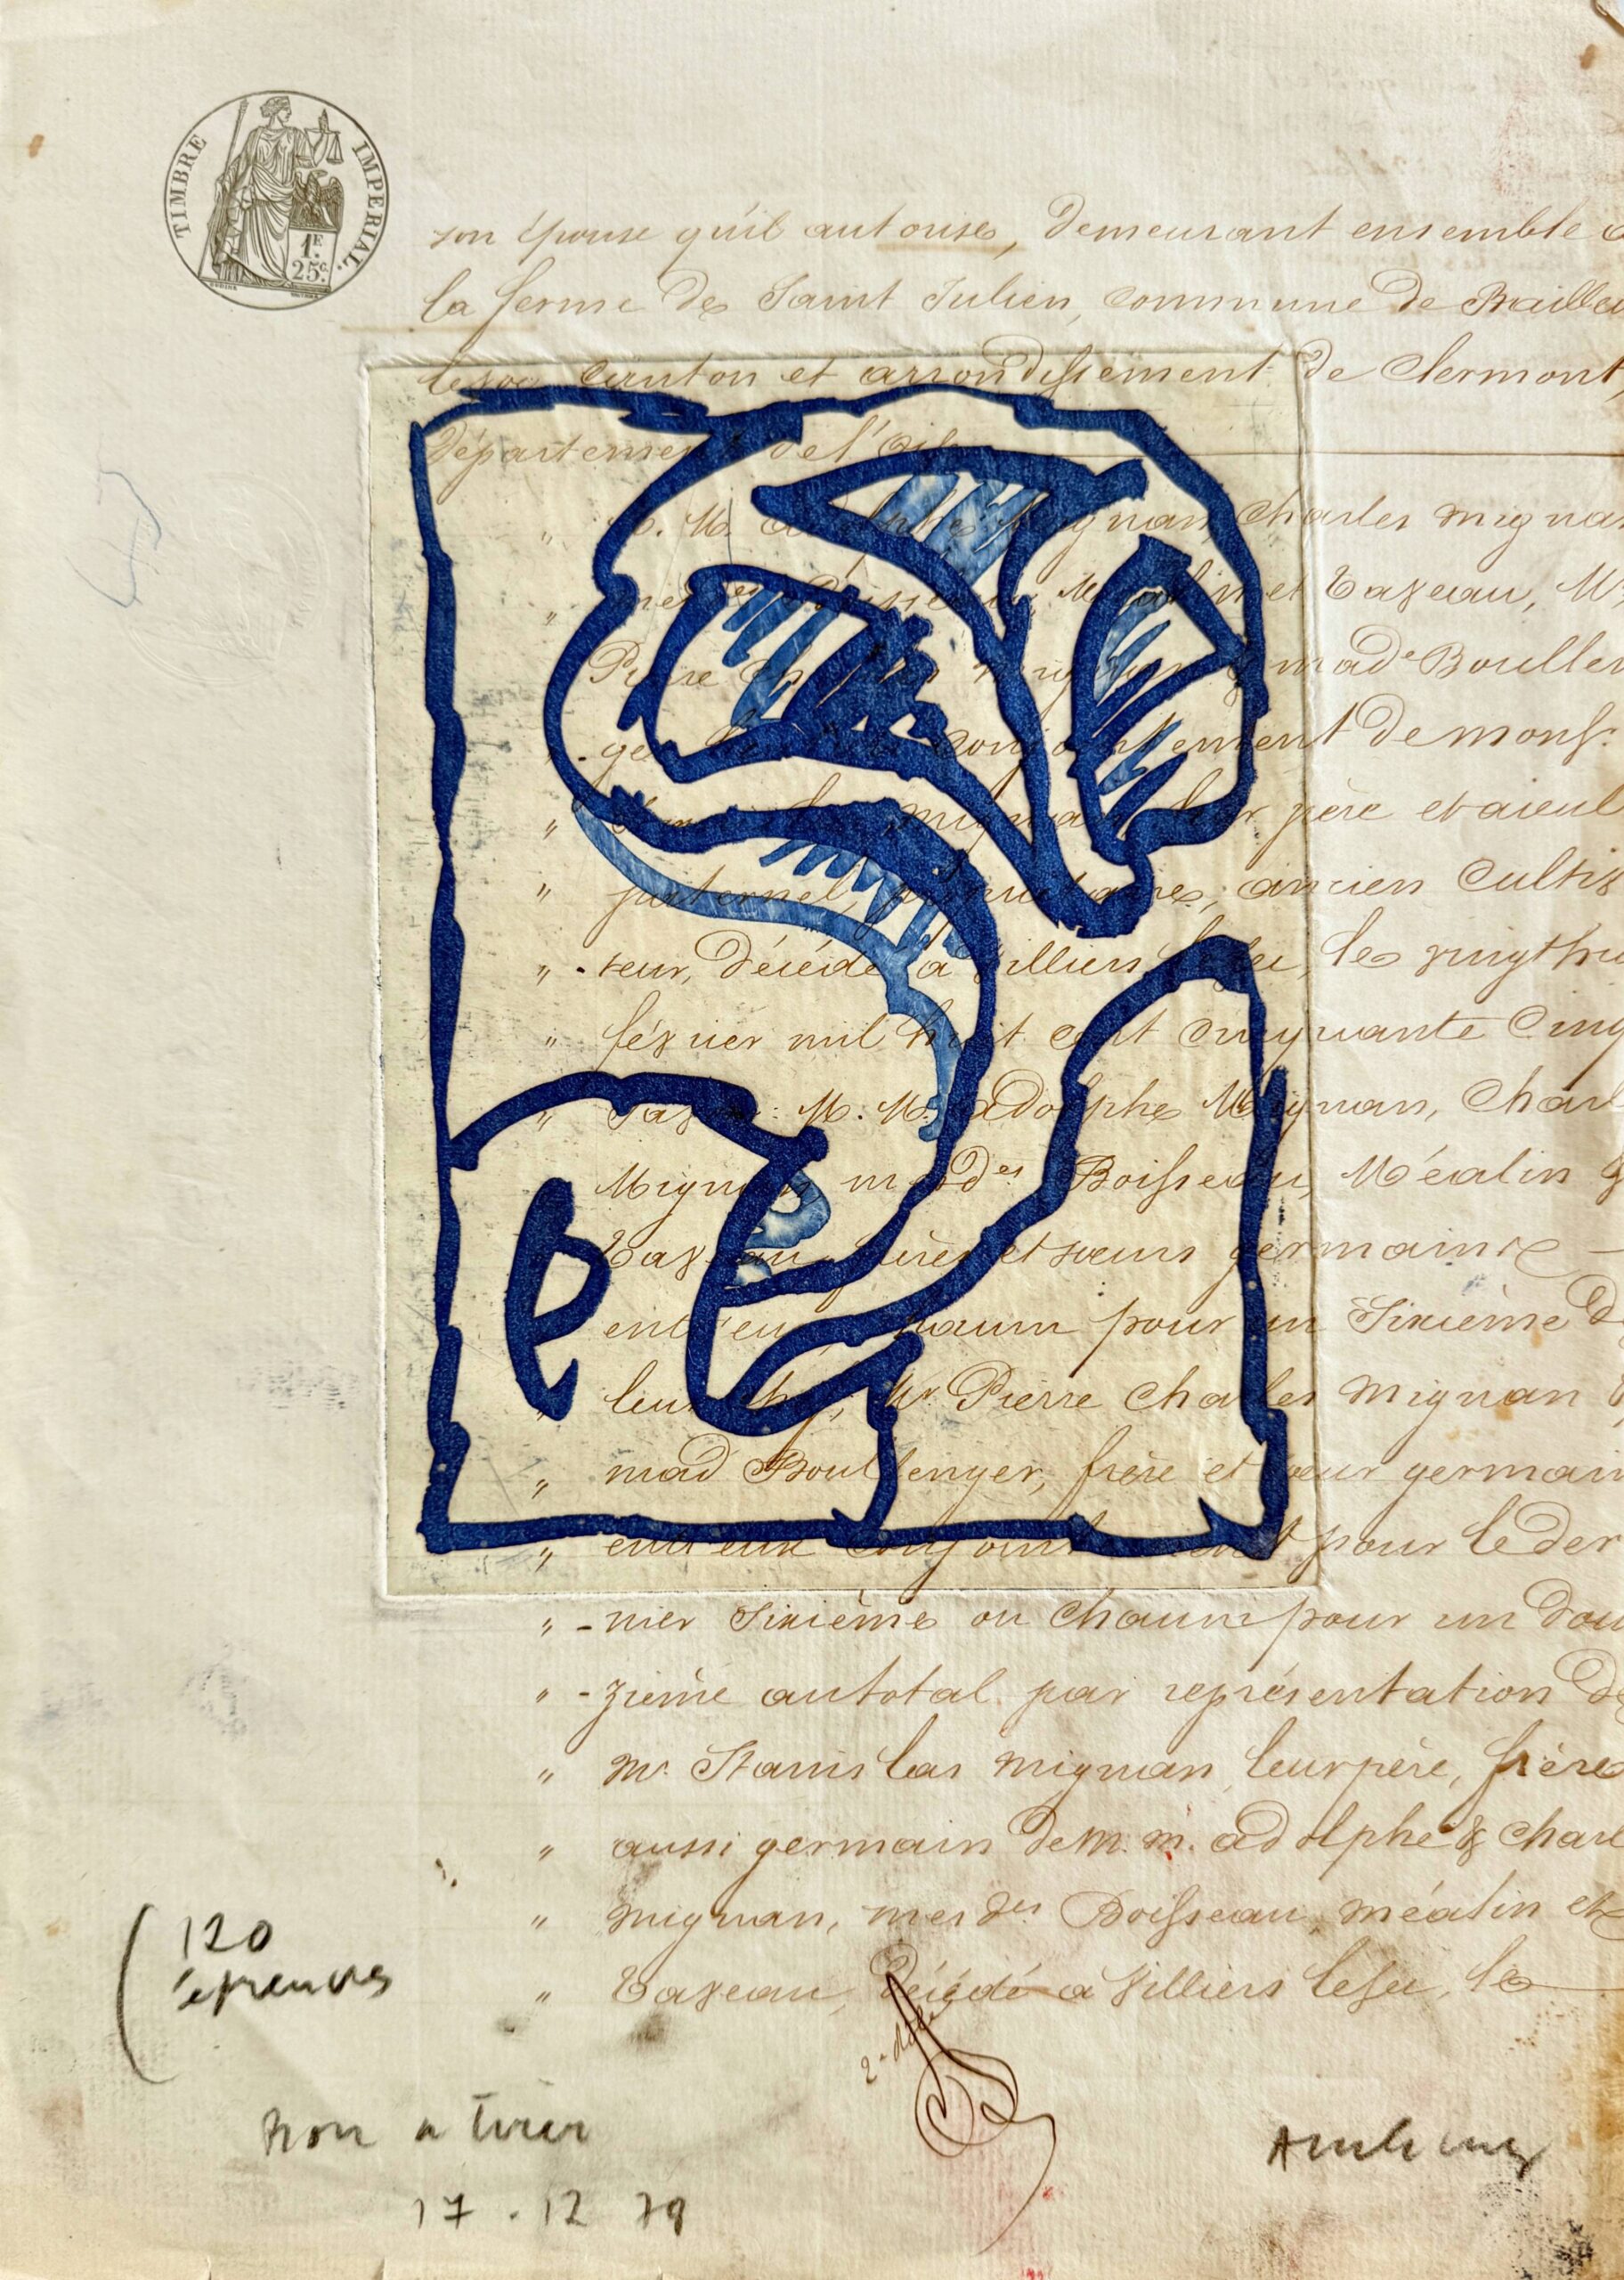 TIMBRE IMPERIAL.
1F. 25c.
son épouse qu'il autorise, demeurant ensemble à
la ferme de Saint Julien, commune de
canton et arrondissement de Clermont,
Département de l'Oise
" M. M. Adolphe Mignan, Charles Migna
" et Tazeau, Mr
Pierre Charles Mignan & made Boullen
" -ger conjointement de monsr.
" Mignan, leur père et aieul
" paternel, propriétaire, ancien Cultiva
" -teur, décédé à Villiers le sec, le vingt huit
" février mil huit cent cinquante cinq
" Savoir: M. M. Adolphe Mignan, Charl
Mignan, mesdes Boisseau, Méalin &
Tazeau, frères et soeurs germains
entr'eux chacun pour un Sixième d
" leur Mr. Pierre Charles Mignan &
" mad Boullenger, frère et soeur germain
" entr'eux conjointement pour le der
" -nier Sixième ou Chacun pour un dou
" -zième au total par représentation de
" Mr. Stanislas Mignan, leur père, frère
" aussi germain de M. M. adolphe & Charl
" Mignan, mesdes Boisseau, Méalin et
" Tazeau, décédé à Villiers le sec, le
120
épreuves
bon a tirer
17.12 79